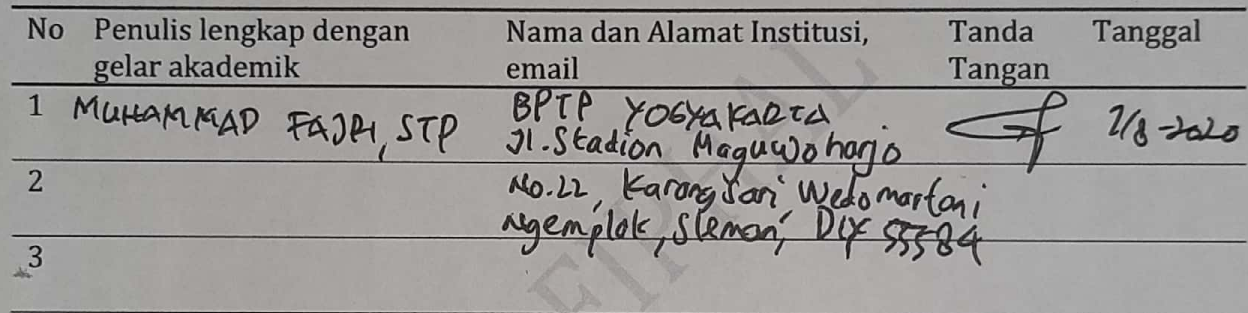 No Penulis lengkap dengan gelar akademik Nama dan Alamat Institusi, email Tanda Tangan Tanggal
1 MUHAMMAD FAJRI, STP BPTP YOGYAKARTA 7/8-2020
Jl. Stadion Maguwoharjo
2 No. 22, Karangsari Wedomartani
Ngemplak, Sleman, DIY 55584
3